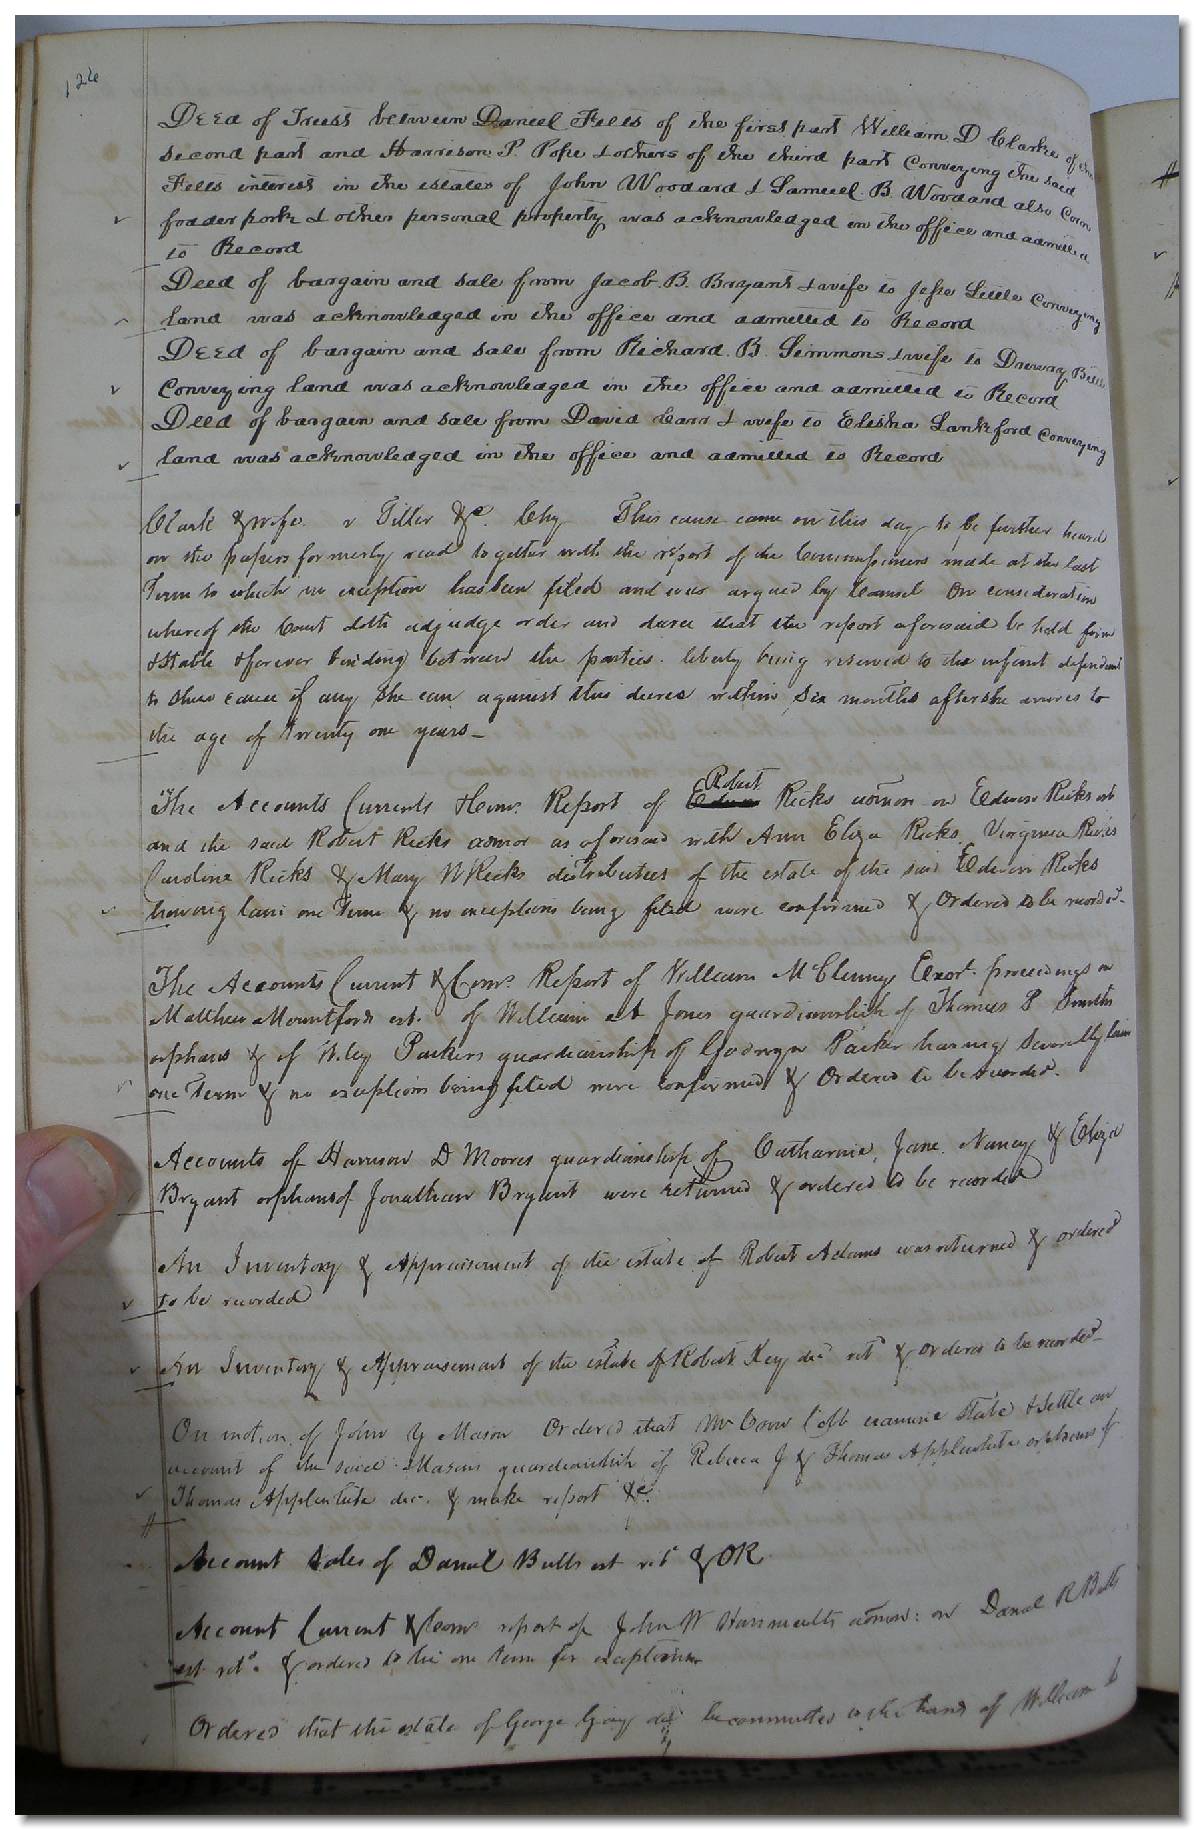 126
Deed of Trust between Daniel Fells of the first part William D Clarke of the
second part and Harrison P. Pope & others of the third part Conveying the said
Fells interest in the estates of John Woodard & Samuel B. Woodard also Corn
fodder pork & other personal property was acknowledged in the office and admitted
to Record
Deed of bargain and sale from Jacob B. Bryant & wife to Jesse Little Conveying
land was acknowledged in the office and admitted to Record
Deed of bargain and sale from Richard B. Simmons & wife to Drewry
Conveying land was acknowledged in the office and admitted to Record
Deed of bargain and sale from David Carr & wife to Elisha Lankford Conveying
land was acknowledged in the office and admitted to Record
Clark & wife v Tiller &c. Chy This cause came on this day to be further heard
on the papers formerly read together with the report of the Commissioners made at the last
Term to which no exception has been filed and was argued by Counsel On consideration
whereof the Court doth adjudge order and decree that the report aforesaid be held firm
& stable & forever binding between the parties. liberty being reserved to the infant defendant
to shew cause if any she can against this decree within six months after she arrives to
the age of twenty one years
The Accounts Currents & Comr. Report of Robert Ricks admor on Edwin Ricks est
and the said Robert Ricks admor as aforesaid with Ann Eliza Ricks, Virginia Ricks
Caroline Ricks & Mary W Ricks distributees of the estate of the said Edwin Ricks
having lain one Term & no exceptions being filed were confirmed & Ordered to be recorded.
The Accounts Current & Comr. Report of William McClenny Exor. proceedings on
Matthew Mountfords est. of William A Jones guardianship of Thomas P Smiths
orphans & of Wiley Parkers guardianship of Godwyn Parker having severally lain
one Term & no exceptions being filed were confirmed & Ordered to be recorded.
Accounts of Harrison D Moores guardianship of Catharine, Jane, Nancy & Eliza
Bryant orphans of Jonathan Bryant were returned & ordered to be recorded
An Inventory & Appraisement of the estate of Robert Adams was returned & ordered
to be recorded
An Inventory & Appraisement of the estate of Robert Key decd ret & ordered to be recorded
On motion of John Y Mason Ordered that Mr Comr Cobb examine state & settle an
account of the said Masons guardianship of Rebecca J & Thomas Applewhite orphans of
Thomas Applewhite dec. & make report &c.
Account Sales of Daniel Butts est ret & OR
Account Current & Comr report of John W admor: on Daniel R Butts
est ret. & ordered to lie one term for exceptions
Ordered that the estate of George Gray decd be committed to the hands of William